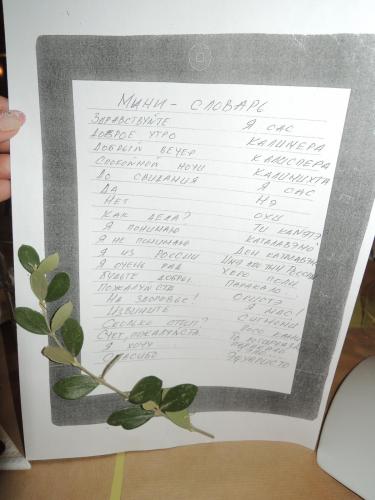 Мини-словарь
Здравствуйте Я сас
Доброе утро Калимера
Добрый вечер Калиспера
Спокойной ночи Калинихта
До свидания Я сас
Да Нэ
Нет Охи
Как дела? Ти канэтэ
Я понимаю Каталавэно
Я не понимаю Дэн каталавэно
Я из России
Я очень рад Хэро поли
Будьте добры Паракалю
Пожалуйста Ористэ
На здоровье! Я мас!
Извините Сигноми
Сколько стоит? Посо кани
Счет, пожалуйста То логариазмо
Я хочу
Спасибо Эфхаристо